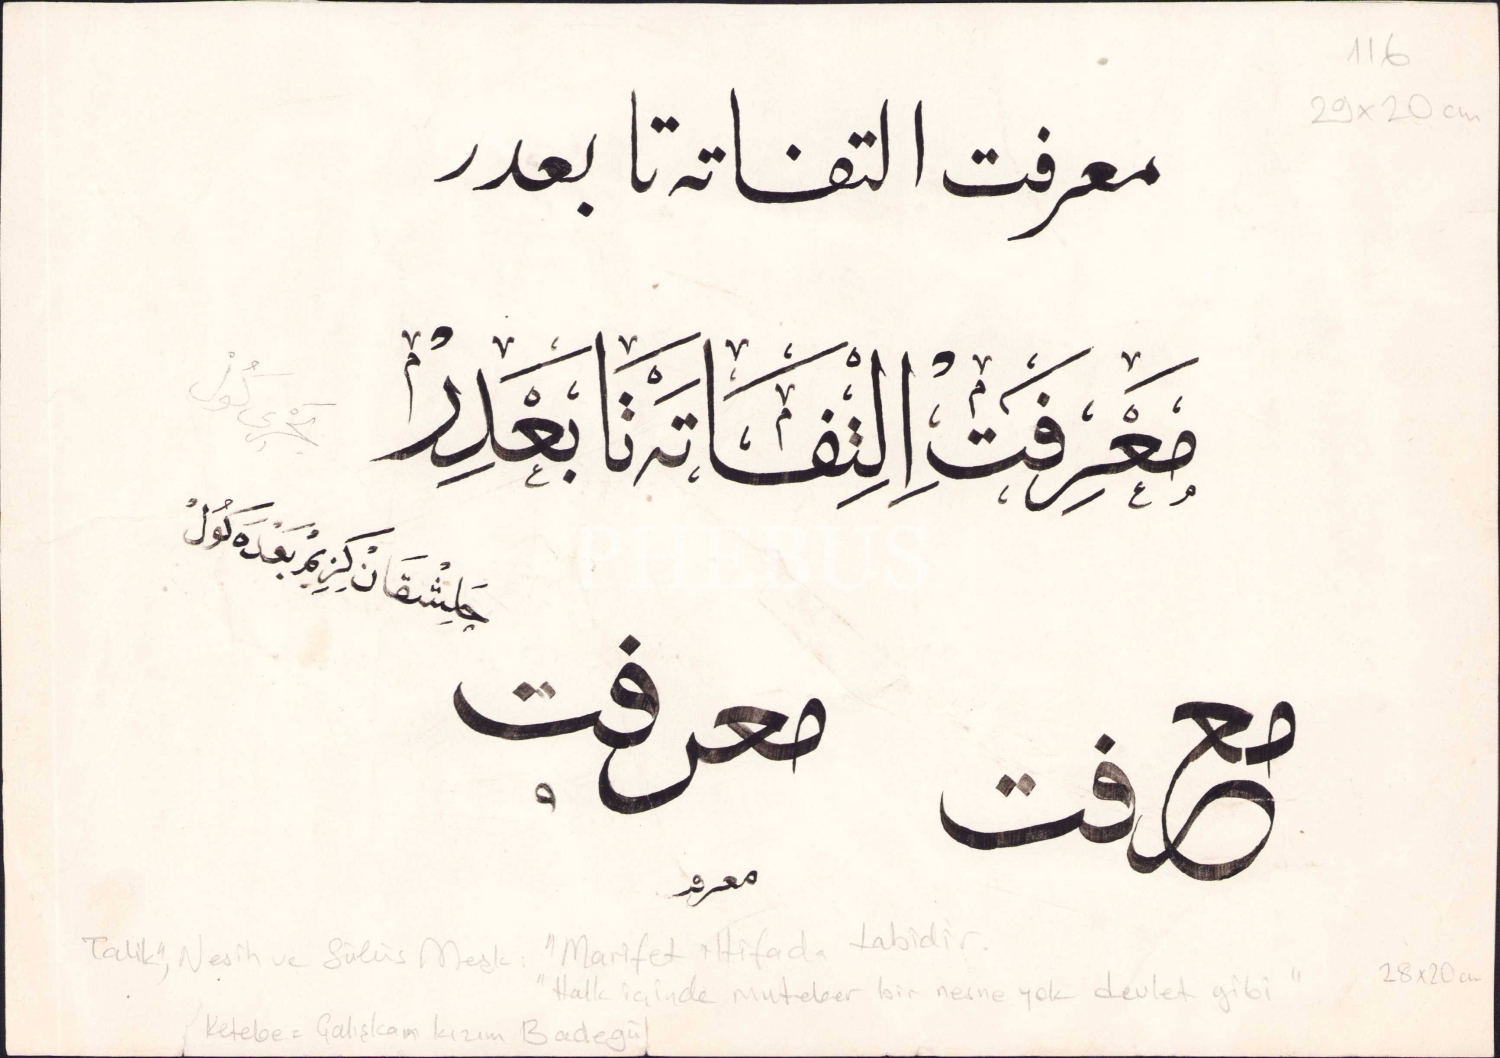 116
29x20 cm
معرفت التفاته تابعدر
مَعْرِفَتْ اِلْتِفَاتَه تَابَعْدِرْ
كُول
چلِشقَانْ كِزِيمْ بَعْدَه كُولْ
معرفت
معرفت
معرو
Talik, Nesih ve Sülüs Meşk: "Marifet iltifada tabidir.
"Halk içinde muteber bir nesne yok devlet gibi"
28x20 cm
Ketebe = Çalışkan kızım Badegül